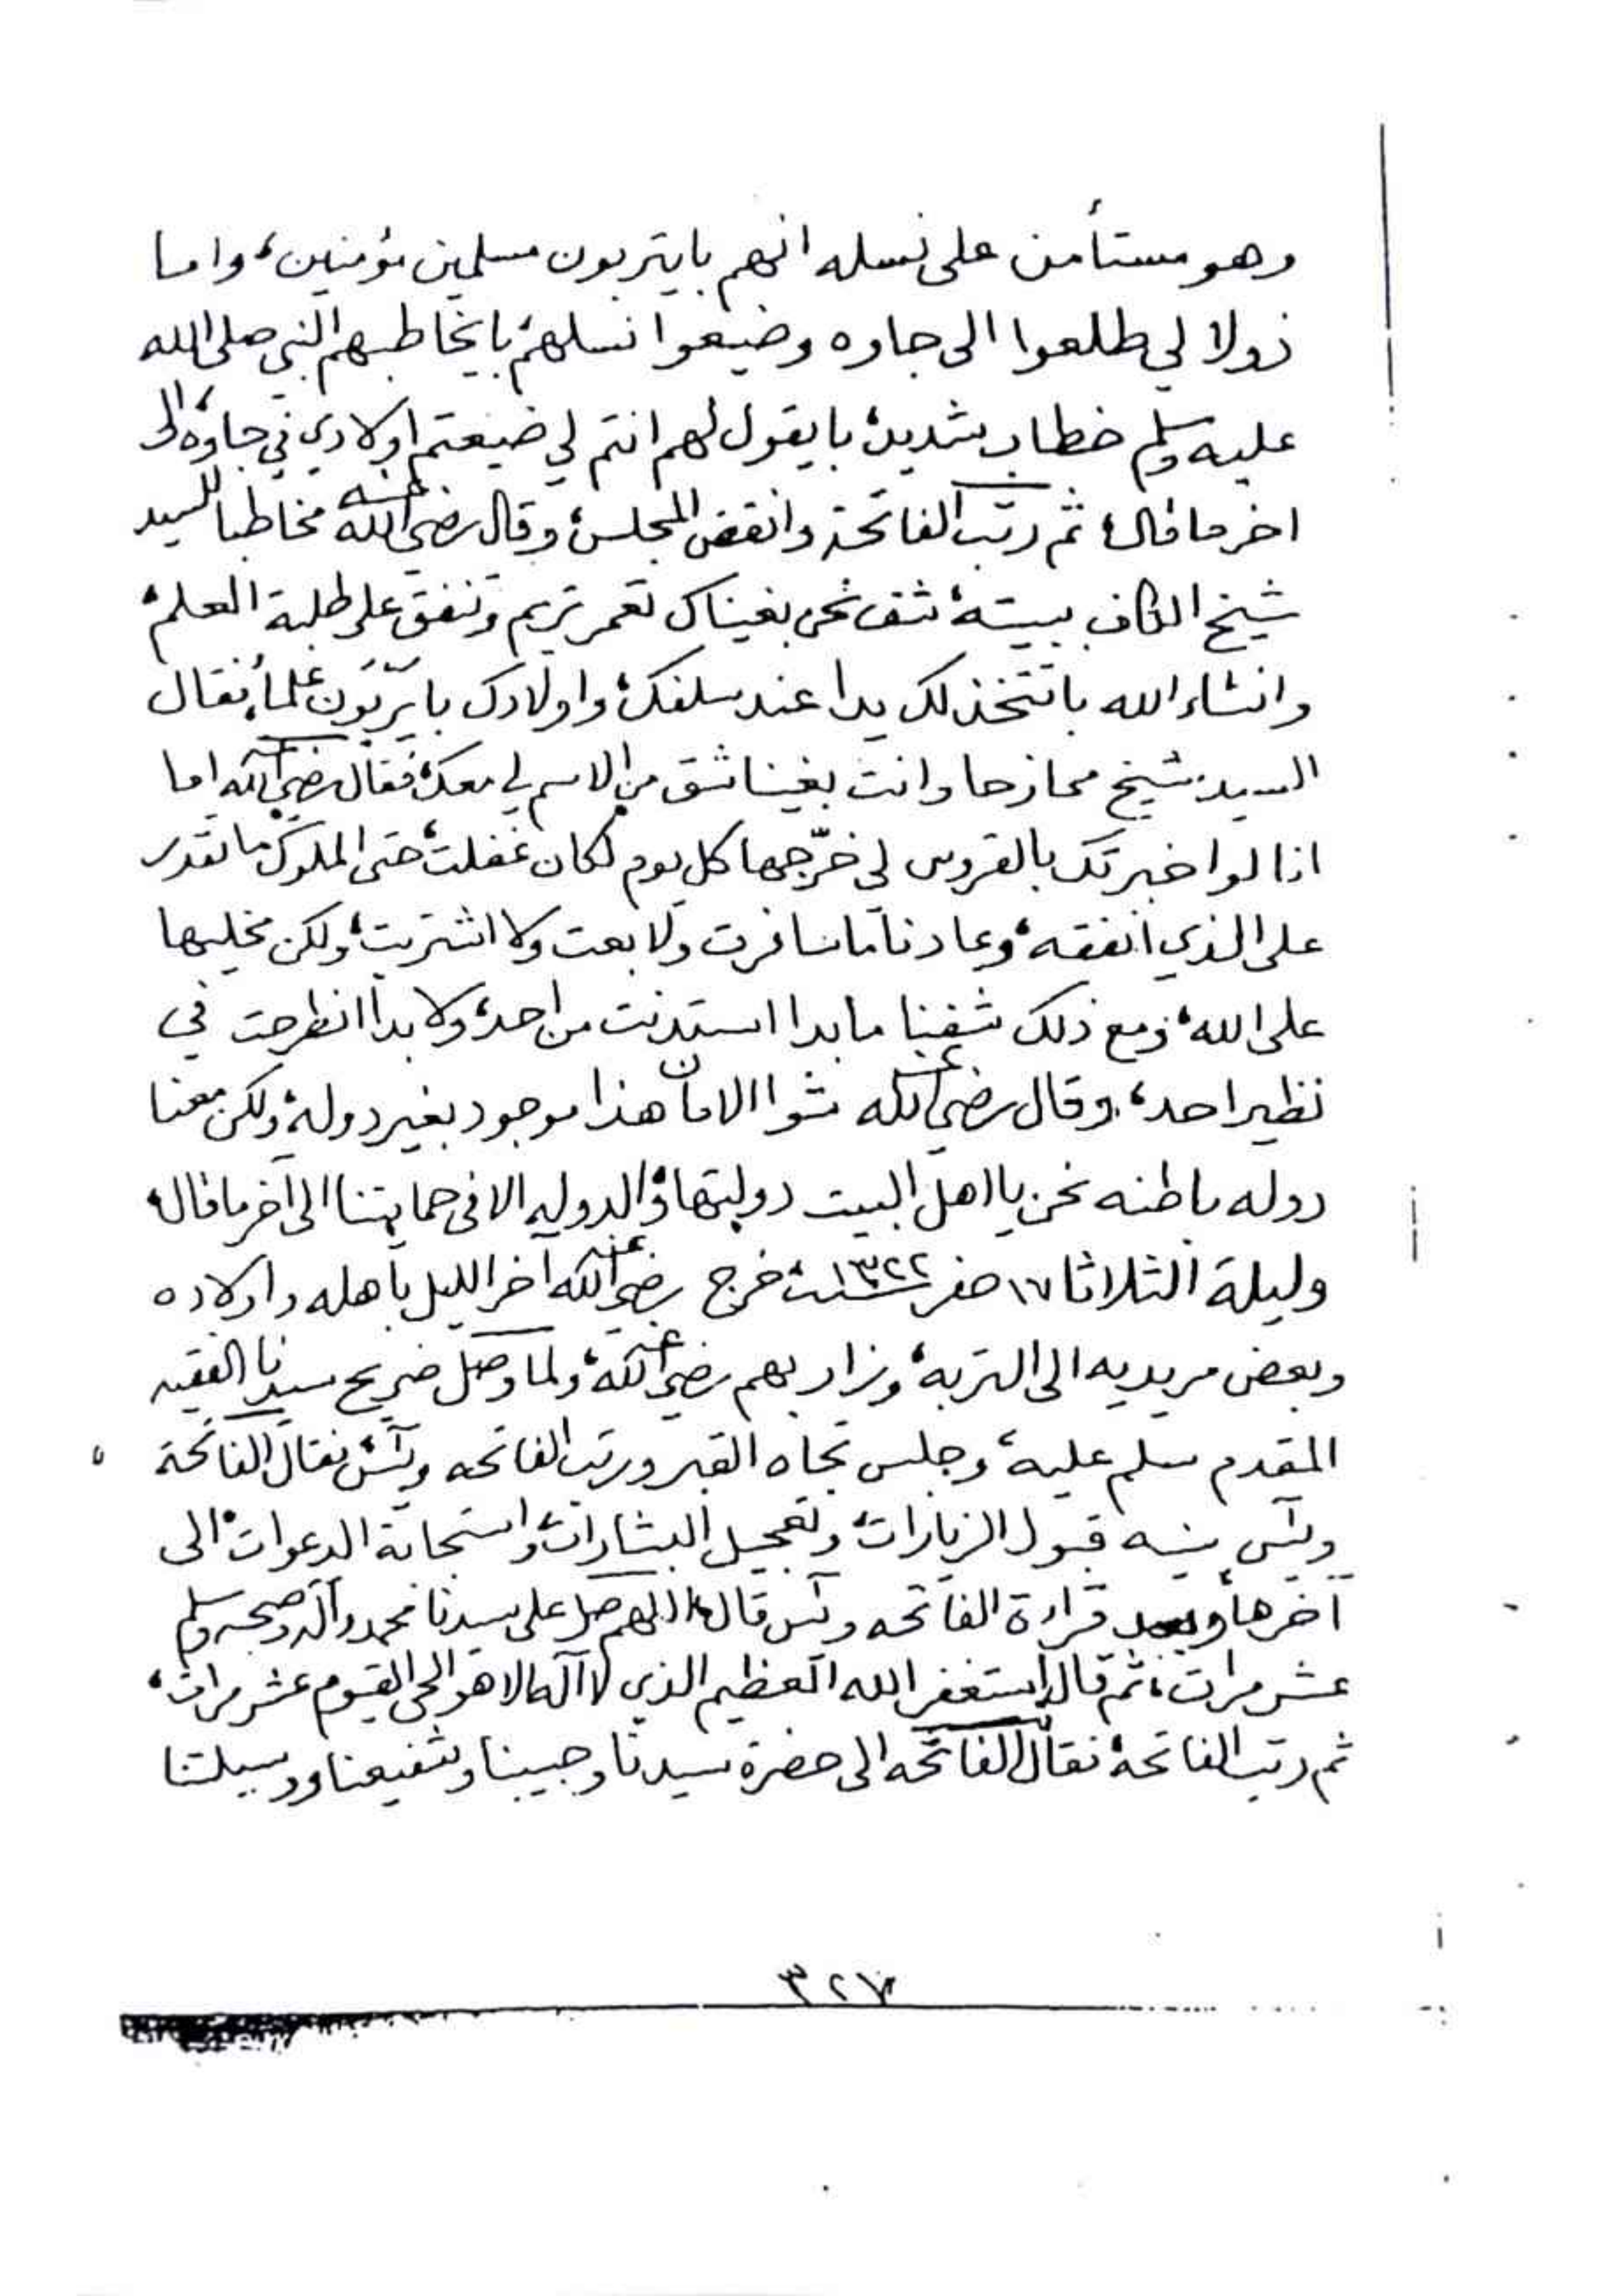 وهو مستأمن على نسله انهم بايتربون مسلمين مؤمنين، واما
ذولا لي طلعوا الى جاوه وضيعوا نسلهم، بايخاطبهم النبي صلى الله
عليه وسلم خطاب شديد، بايقول لهم انتم لي ضيعتم اولادي في جاوه، الى
اخر ما قال، ثم رتب الفاتحة وانقض المجلس، وقال رضي الله عنه مخاطبا للسيد
شيخ الكاف ببيته، شف نحن بغيناك تعمر تريم وتنفق على طلبة العلم،
وانشاء الله باتتخذ لك يدا عند سلفك، واولادك بايربّون علما، فقال
السيد شيخ ممازحا وانت بغينا شق من الاسم لي معك، فقال رضي الله عنه اما
انا لو اخبرتك بالقروس لي خرّجها كل يوم لكان غفلت، حتى الملوك ما تقدر
على الذي انفقه، وعادنا ما سافرت ولا بعت ولا اشتريت، ولكن مخليها
على الله، ومع ذلك شفنا ما بدا استدنت من احد، ولا بدا انطرحت في
نظير احد، وقال رضي الله عنه شوا الامان هذا موجود بغير دولة، ولكن معنا
دوله باطنه نحن يا اهل البيت دوليتها، والدوله الا في حمايتنا الى آخر ما قال،
وليلة الثلاثا ١٧ صفر سنة ١٣٢٢ خرج رضي الله عنه آخر الليل بأهله واولاده
وبعض مريديه الى التربه، وزار بهم رضي الله عنه، ولما وصل ضريح سيدنا الفقيه
المقدم سلم عليه، وجلس تجاه القبر ورتب الفاتحه ويس، فقال الفاتحة
ويس بنيه قبول الزيارات، وتعجيل البشارات، واستجابة الدعوات، الى
آخرها، وبعد قراءة الفاتحه ويس قال، اللهم صل على سيدنا محمد وآله وصحبه وسلم
عشر مرات، ثم قال استغفر الله العظيم الذي لا آله الا هو الحي القيوم عشر مرات،
ثم رتب الفاتحة، فقال الفاتحه الى حضرة سيدنا وحبيبنا وشفيعنا ووسيلتنا
٣٢٧